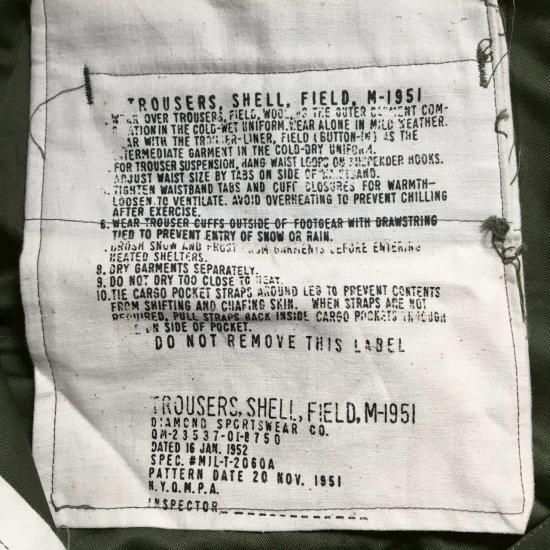 TROUSERS, SHELL, FIELD, M-1951
WEAR OVER TROUSERS, FIELD, WOOL, AS THE OUTER GARMENT COM-
BINATION IN THE COLD-WET UNIFORM. WEAR ALONE IN MILD WEATHER.
WEAR WITH THE TROUSER-LINER, FIELD (BUTTON-IN) AS THE
INTERMEDIATE GARMENT IN THE COLD-DRY UNIFORM.
FOR TROUSER SUSPENSION, HANG WAIST LOOPS ON SUSPENDER HOOKS.
ADJUST WAIST SIZE BY TABS ON SIDE OF WAISTBAND.
TIGHTEN WAISTBAND TABS AND CUFF CLOSURES FOR WARMTH-
LOOSEN TO VENTILATE. AVOID OVERHEATING TO PREVENT CHILLING
AFTER EXERCISE.
6. WEAR TROUSER CUFFS OUTSIDE OF FOOTGEAR WITH DRAWSTRING
TIED TO PREVENT ENTRY OF SNOW OR RAIN.
BRUSH SNOW AND FROST FROM GARMENTS BEFORE ENTERING
HEATED SHELTERS.
8. DRY GARMENTS SEPARATELY.
9. DO NOT DRY TOO CLOSE TO HEAT.
10. TIE CARGO POCKET STRAPS AROUND LEG TO PREVENT CONTENTS
FROM SHIFTING AND CHAFING SKIN. WHEN STRAPS ARE NOT
REQUIRED, PULL STRAPS BACK INSIDE CARGO POCKETS THROUGH
ON SIDE OF POCKET.
DO NOT REMOVE THIS LABEL
TROUSERS, SHELL, FIELD, M-1951
DIAMOND SPORTSWEAR CO.
QM-23537-OI-8750
DATED 16 JAN. 1952
SPEC. #MIL-T-2060A
PATTERN DATE 20 NOV. 1951
N.Y.Q.M.P.A.
INSPECTOR